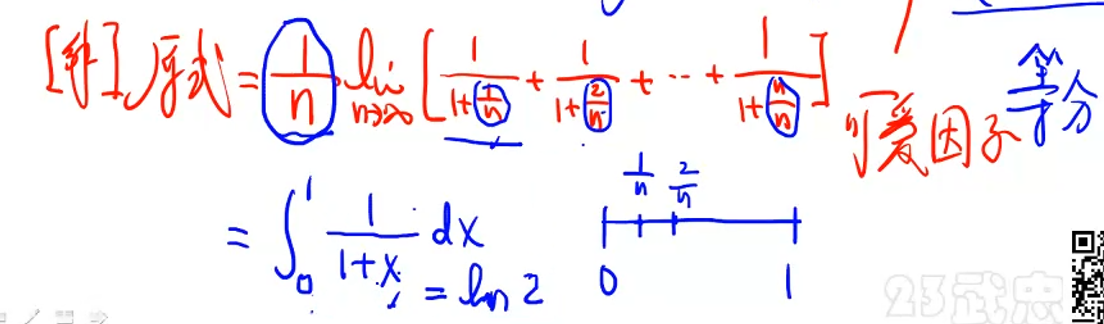 [解] 原式 = 1/n lim n→∞ [ 1/(1+1/n) + 1/(1+2/n) + ⋯ + 1/(1+n/n) ]
可爱因子 n等分
= ∫₀¹ 1/(1+x) dx = ln 2
1/n 2/n
0 1
23武忠